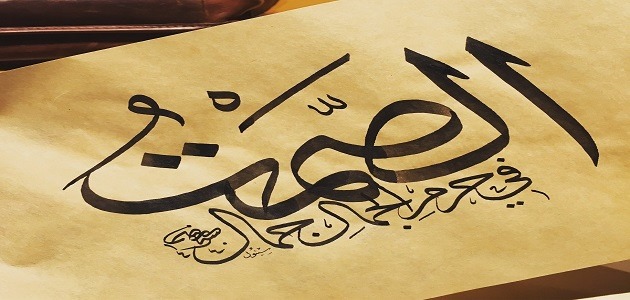 الصَّمْتُ
في حرم الجمال جمال